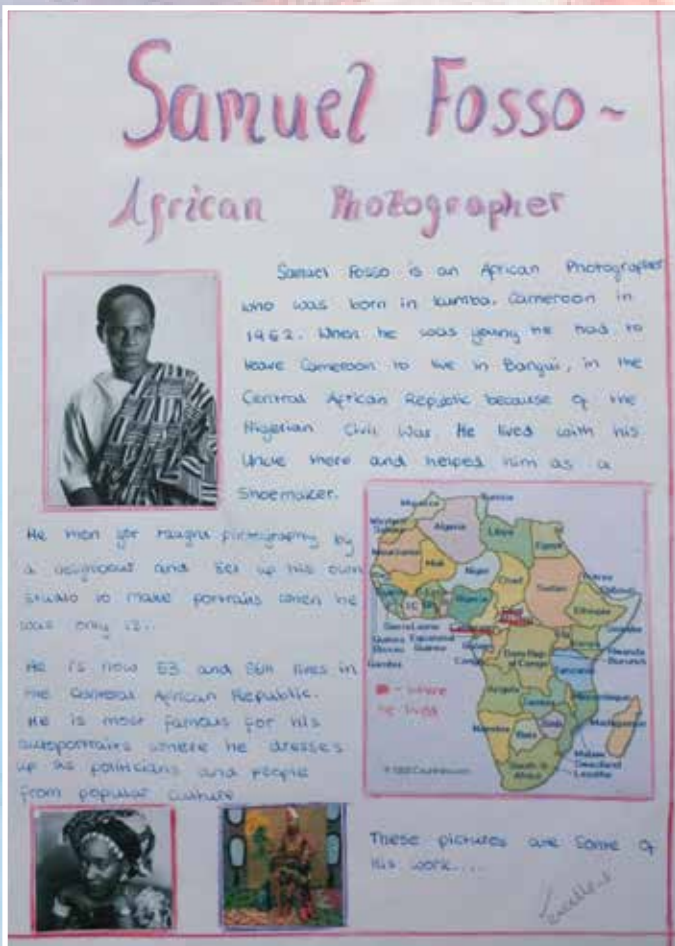 Samuel Fosso ~
African Photographer
Samuel Fosso is an African Photographer
who was born in Kumba, Cameroon in
1962. When he was young he had to
leave Cameroon to live in Bangui, in the
Central African Republic because of the
Nigerian Civil War. He lived with his
Uncle there and helped him as a
Shoemaker.
He then got taught photography by
a neighbour and set up his own
studio to make portraits when he
was only 13.
He is now 53 and still lives in
the Central African Republic.
He is most famous for his
autoportraits where he dresses
up as politicians and people
from popular culture
Morocco
Tunisia
Algeria
Libya
Egypt
Mauritania
Mali
Niger
Chad
Sudan
Eritrea
Djibouti
Nigeria
Ethiopia
Sierra Leone
Equatorial
Guinea
Guinea
Bissau
Gambia
Dem Rep
of Congo
Rwanda
Burundi
Tanzania
Angola
Zambia
Mozambique
Madagascar
Namibia
Malawi
Swaziland
Lesotho
South
Africa
- where
he lived
These pictures are some of
his work....
Excellent